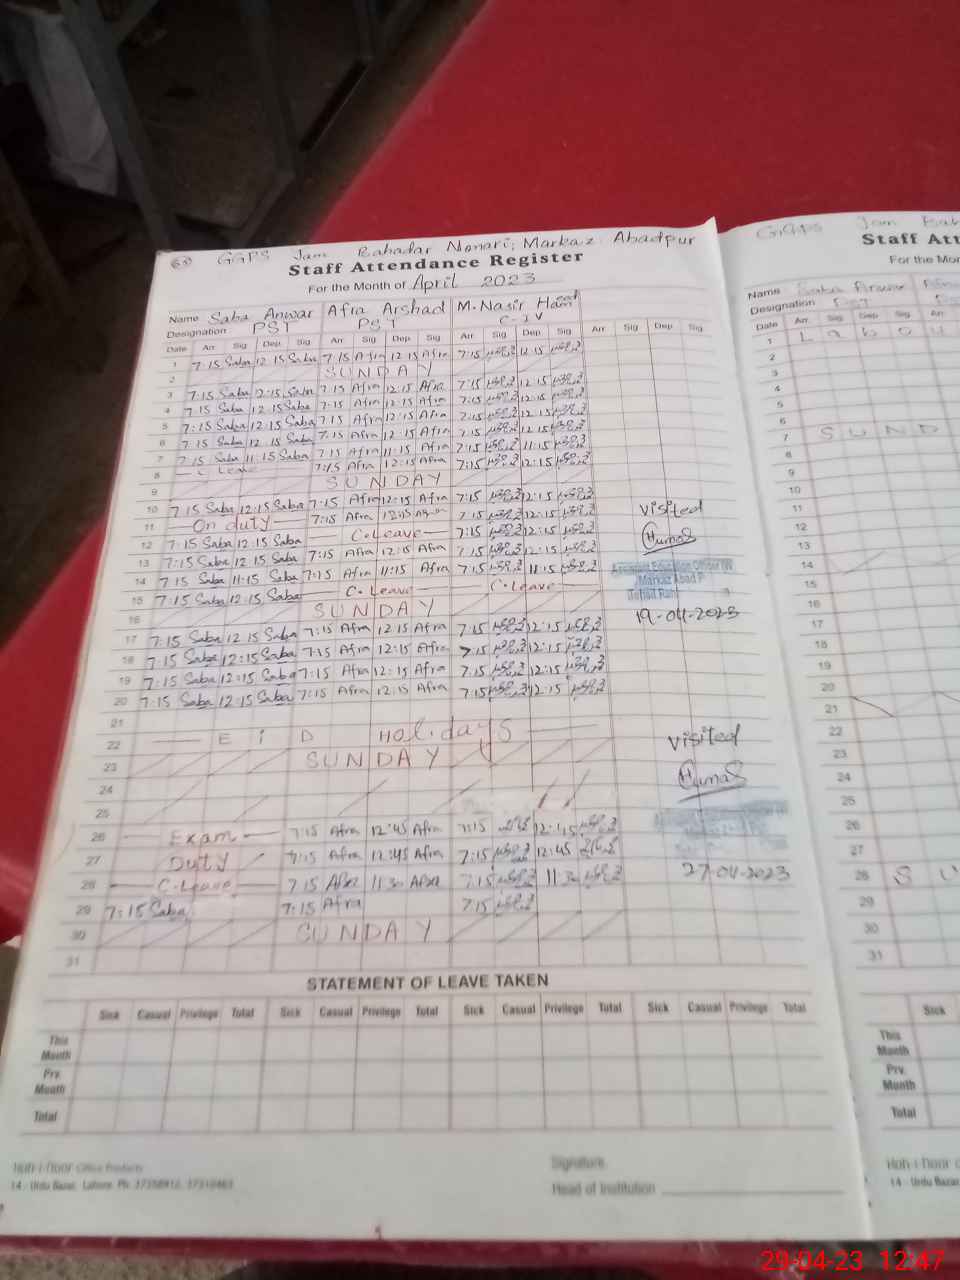 63 GGPS Jam Bahadar Nonari; Markaz Abadpur
Staff Attendance Register
For the Month of April 2023
Name Saba Anwar Afra Arshad M. Nasir
Designation PST PST C-IV
Date Arr Sig Dep Sig Arr Sig Dep Sig Arr Sig Dep Sig Arr Sig Dep Sig
1 7:15 Saba 12:15 Saba 7:15 Afra 12:15 Afra 7:15 12:15
2 SUNDAY
3 7:15 Saba 12:15 Saba 7:15 Afra 12:15 Afra 7:15 12:15
4 7:15 Saba 12:15 Saba 7:15 Afra 12:15 Afra 7:15 12:15
5 7:15 Saba 12:15 Saba 7:15 Afra 12:15 Afra 7:15 12:15
6 7:15 Saba 12:15 Saba 7:15 Afra 12:15 Afra 7:15 12:15
7 7:15 Saba 11:15 Saba 7:15 Afra 11:15 Afra 7:15 11:15
8 C Leave 7:15 Afra 12:15 Afra 7:15 12:15
9 SUNDAY
10 7:15 Saba 12:15 Saba 7:15 Afra 12:15 Afra 7:15 12:15
11 On duty 7:15 Afra 12:15 7:15 12:15 visited
12 7:15 Saba 12:15 Saba C.Leave 7:15 12:15
13 7:15 Saba 12:15 Saba 7:15 Afra 12:15 Afra 7:15 12:15
14 7:15 Saba 11:15 Saba 7:15 Afra 11:15 Afra 7:15 11:15 Assistant Education Officer (W)
15 7:15 Saba 12:15 Saba C.Leave C.Leave Markaz Abad P
16 SUNDAY 19-04-2023
17 7:15 Saba 12:15 Saba 7:15 Afra 12:15 Afra 7:15 12:15
18 7:15 Saba 12:15 Saba 7:15 Afra 12:15 Afra 7:15 12:15
19 7:15 Saba 12:15 Saba 7:15 Afra 12:15 Afra 7:15 12:15
20 7:15 Saba 12:15 Saba 7:15 Afra 12:15 Afra 7:15 12:15
21
22 EID Holidays visited
23 SUNDAY
24
25
26 Exam 7:15 Afra 12:45 Afra 7:15
27 Duty 7:15 Afra 12:45 Afra 7:15 12:45
28 C.Leave 7:15 Afra 11:30 Afra 7:15 11:30 27-04-2023
29 7:15 Saba 7:15 Afra 7:15
30 SUNDAY
31
STATEMENT OF LEAVE TAKEN
Sick Casual Privilege Total Sick Casual Privilege Total Sick Casual Privilege Total Sick Casual Privilege Total
This Month
Prv. Month
Total
Koh-i-Noor Office Products
14 - Urdu Bazar, Lahore. Ph:
Signature
Head of Institution
GGPS Jam Bah
Staff Att
For the Mon
Name Saba Anwar
Designation PST
Date Arr Sig Dep Sig Arr
1 Labou
2
3
4
5
6
7 SUND
8
9
10
11
12
13
14
15
16
17
18
19
20
21
22
23
24
25
26
27
28 SU
29
30
31
Sick
This Month
Prv. Month
Total
Koh-i-Noor
14 - Urdu Bazar,
29-04-23 12:47